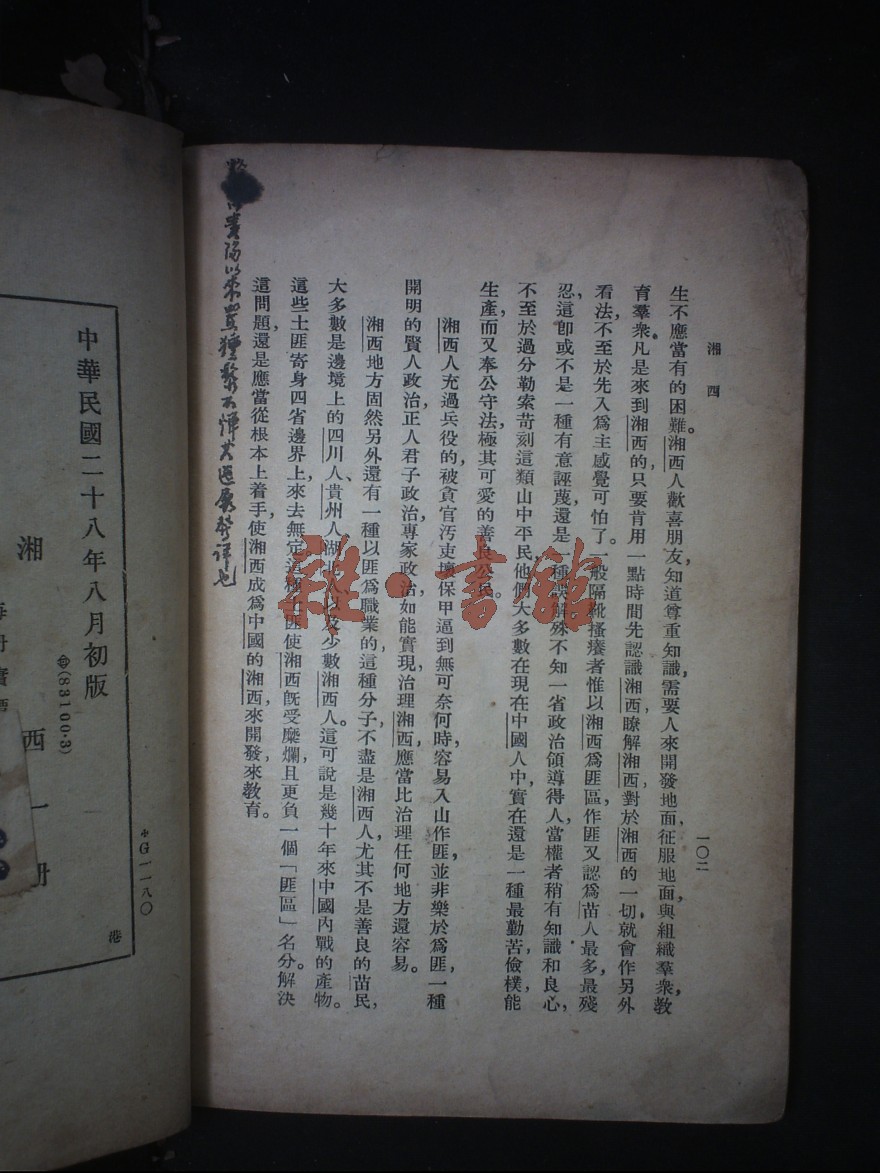 湘西
一〇二
生不應當有的困難。湘西人歡喜朋友，知道尊重知識，需要人來開發地面，征服地面，與組織羣衆，教
育羣衆。凡是來到湘西的，只要肯用一點時間先認識湘西，瞭解湘西，對於湘西的一切，就會作另外
看法，不至於先入爲主感覺可怕了。一般隔靴搔癢者惟以湘西爲匪區，作匪又認爲苗人最多，最殘
忍，這卽或不是一種有意誣蔑，還是一種誤解。殊不知一省政治領導得人，當權者稍有知識和良心，
不至於過分勒索苛刻這類山中平民，他們大多數在現在中國人中，實在還是一種最勤苦儉樸，能
生產而又奉公守法，極其可愛的善良公民。
湘西人充過兵役的，被貪官汚吏壞保甲逼到無可奈何時，容易入山作匪，並非樂於爲匪。一種
開明的賢人政治，正人君子政治，專家政治，如能實現，治理湘西，應當比治理任何地方還容易。
湘西地方固然另外還有一種以匪爲職業的，這種分子，不盡是湘西人，尤其不是善良的苗民，
大多數是邊境上的四川人、貴州人、湖北人，以及少數湘西人。這可說是幾十年來中國內戰的產物。
這些土匪寄身四省邊界上，來去無定，這種土匪使湘西旣受糜爛，且更負一個「匪區」名分。解決
這問題，還是應當從根本上着手，使湘西成爲中國的湘西，來開發，來教育。
中華民國二十八年八月初版
(83100·3)
湘西一册
每册實
*G一一八〇
港
雜·書館